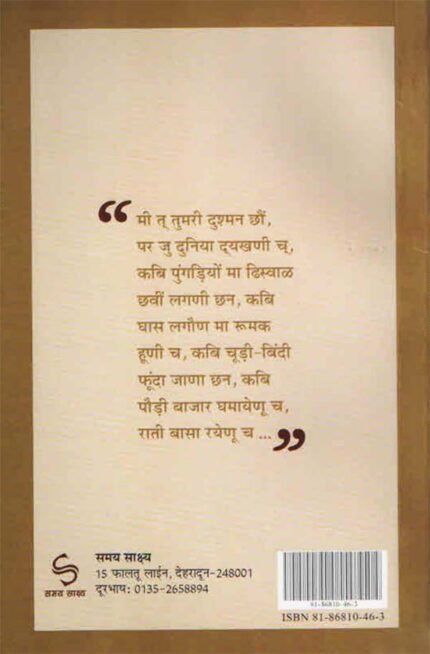 “ मी त् तुमरी दुश्मन छौं,
पर जु दुनिया द्यखणी च्,
कबि पुंगड़ियों मा ढिस्वाळ
छवीं लगणी छन, कबि
घास लगौण मा रूमक
हूणी च, कबि चूड़ी-बिंदी
फूंदा जाणा छन, कबि
पौड़ी बाजार घमायेणू च,
राती बासा रयेणू च ... ”
समय साक्ष्य
15 फालतू लाईन, देहरादून-248001
दूरभाष: 0135-2658894
समय साक्ष्य
81-86810-46-3
ISBN 81-86810-46-3